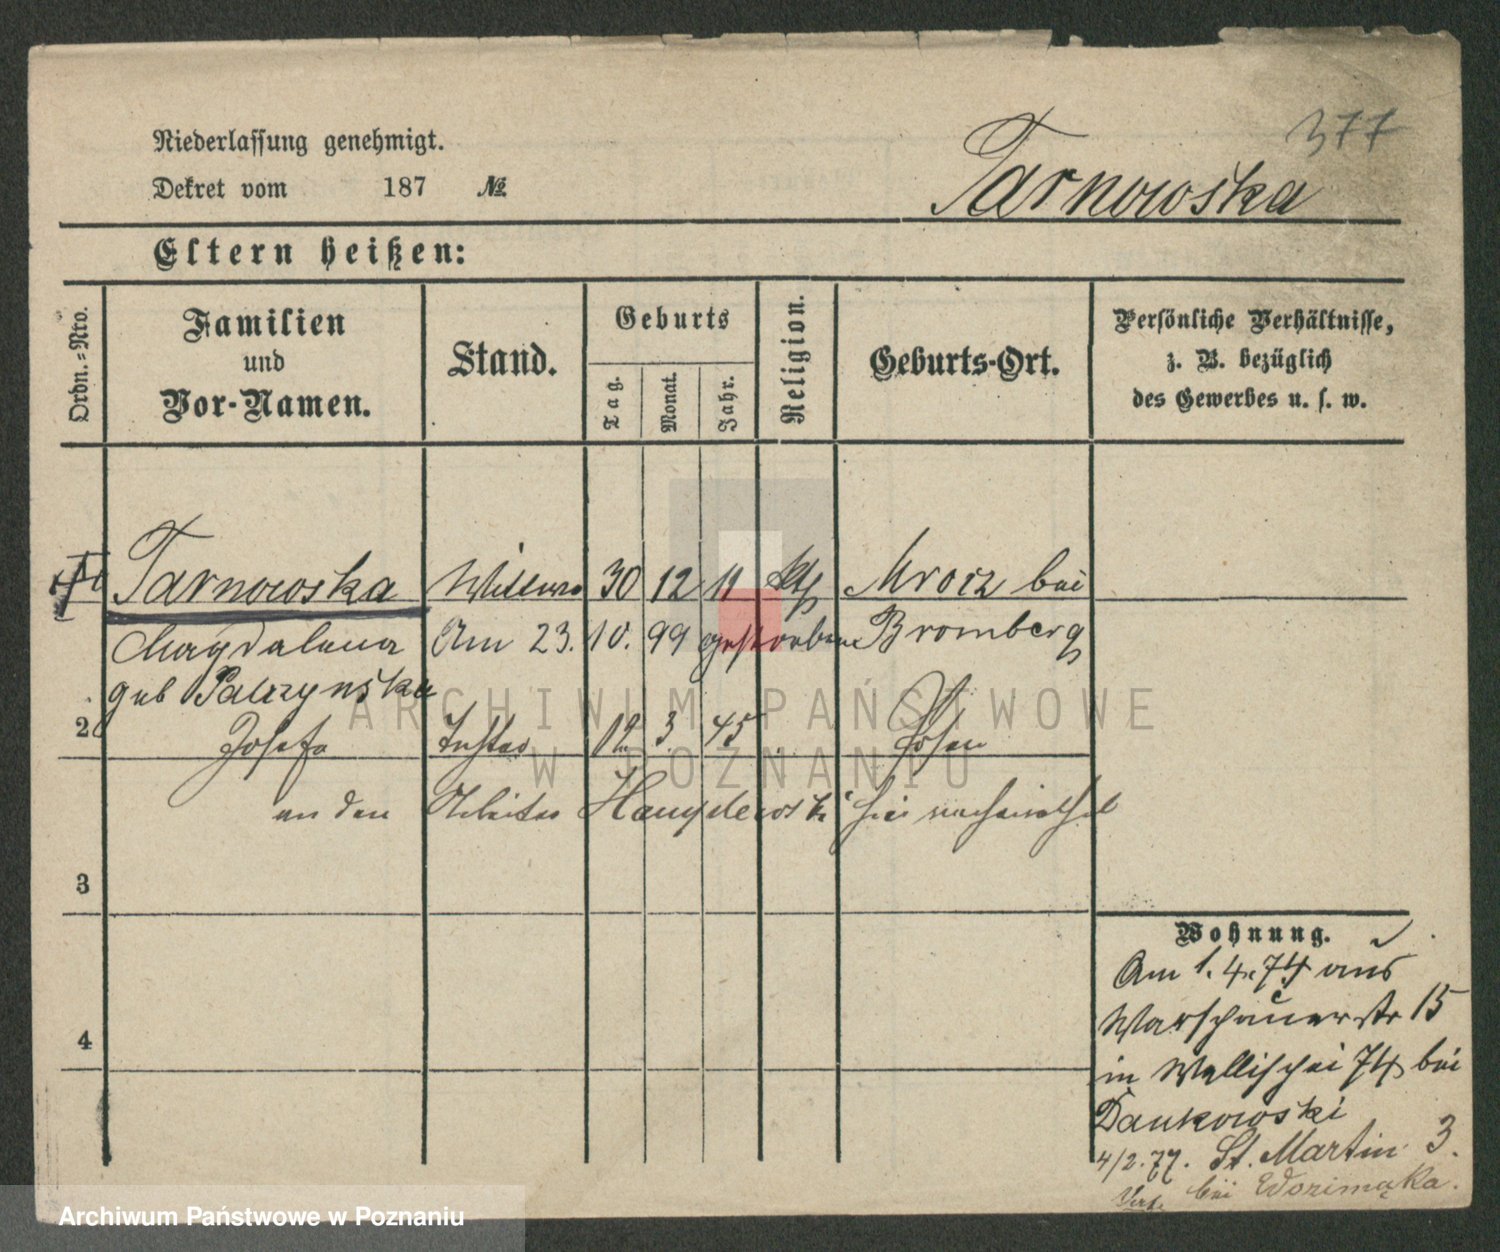 377
Niederlassung genehmigt.
Dekret vom 187 №
Tarnowska
Eltern heißen:
Ordn.-Nro.
Familien und Vor-Namen.
Stand.
Geburts
Tag.
Monat.
Jahr.
Religion.
Geburts-Ort.
Persönliche Verhältnisse,
z. B. bezüglich
des Gewerbes u. s. w.
Tarnowska Wittwe 30 12 11 kth Mrocz bei
Magdalena Am 23. 10. 99 gestorben Bromberg
geb Palczynska
2 Josefa Tochter 12. 3. 45 Posen
an den Arbeiter hier verheirathet
3
4
Wohnung.
Am 1. 4. 74 aus
Warschauerstr 15
in Wallischei 74 bei
Dankowski
4/2.77. St. Martin 3.
bei Wozimąka.
ARCHIWUM PAŃSTWOWE
W POZNANIU
Archiwum Państwowe w Poznaniu